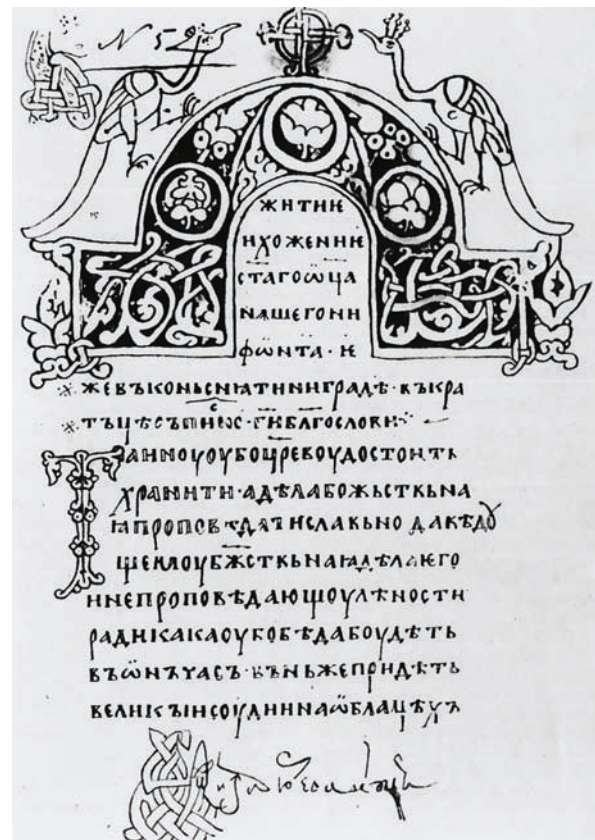 N 52
ЖИТИЕ
И ХОЖЕНИЕ
СТАГО ѾЦА
НАШЕГО НИ
ФѠНТА · И
ЖЕ ВЪ КОНЬСНІАТИНИ ГРАДѢ · ВЪ КРА
ТЪЦѢ СЪПИС · ГИ БЛАГОСЛОВИ
ТАИНОУ ОУБО ЦРЕВОУ ДОСТОИТЬ
ХРАНИТИ · А ДѢЛА БОЖЬСТВЬНА
ІА ПРОПОВѢДАТИ СЛАВЬНО ДА КѢДОУ
ШЕИ ЛОУ БЖСТВЬНАІА ДѢЛА ЕГО
И НЕ ПРОПОВѢДАЮЩОУ ЛѢНОСТИ
РАДИ КАКА ОУБО БѢДА БОУДѢТЬ
ВЪ ѠНЪ ЧАСЪ · ВЪ НЬЖЕ ПРИДѢТЬ
ВЕЛИКЪИ СОУДИИ НА ѠБЛАЦѢХЪ